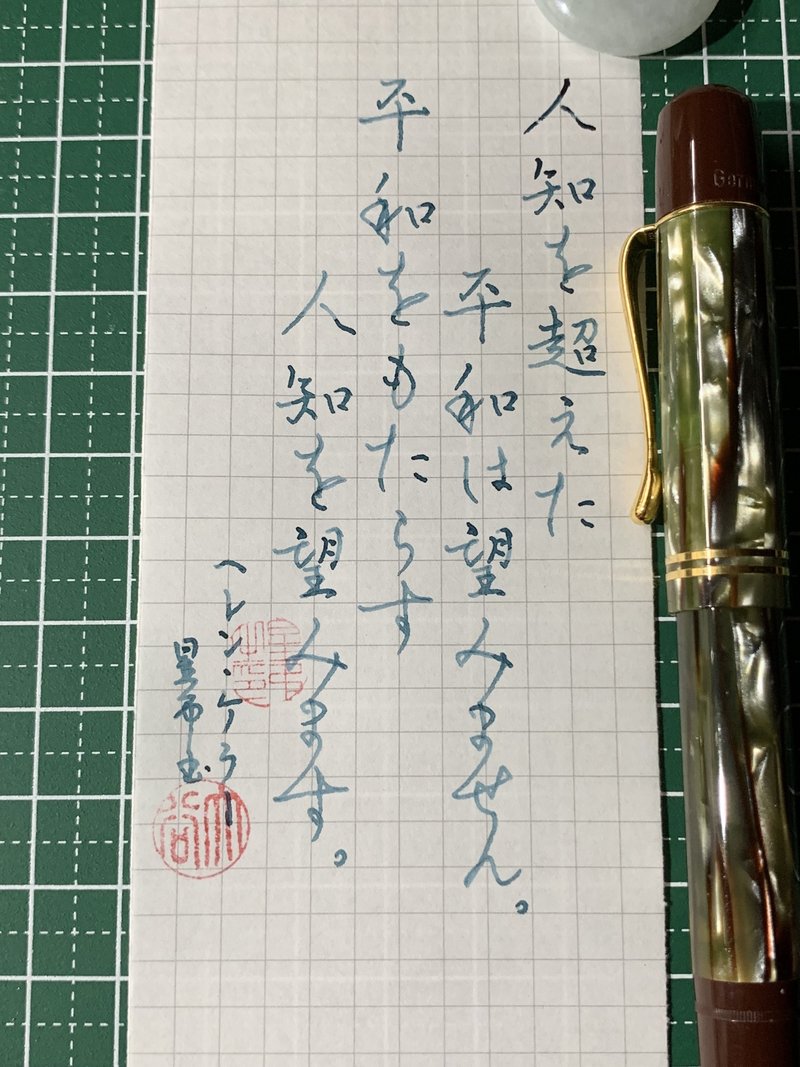 人知を超えた
平和は望みません。
平和をもたらす
人知を望みます。
ヘレン・ケラー
Germ